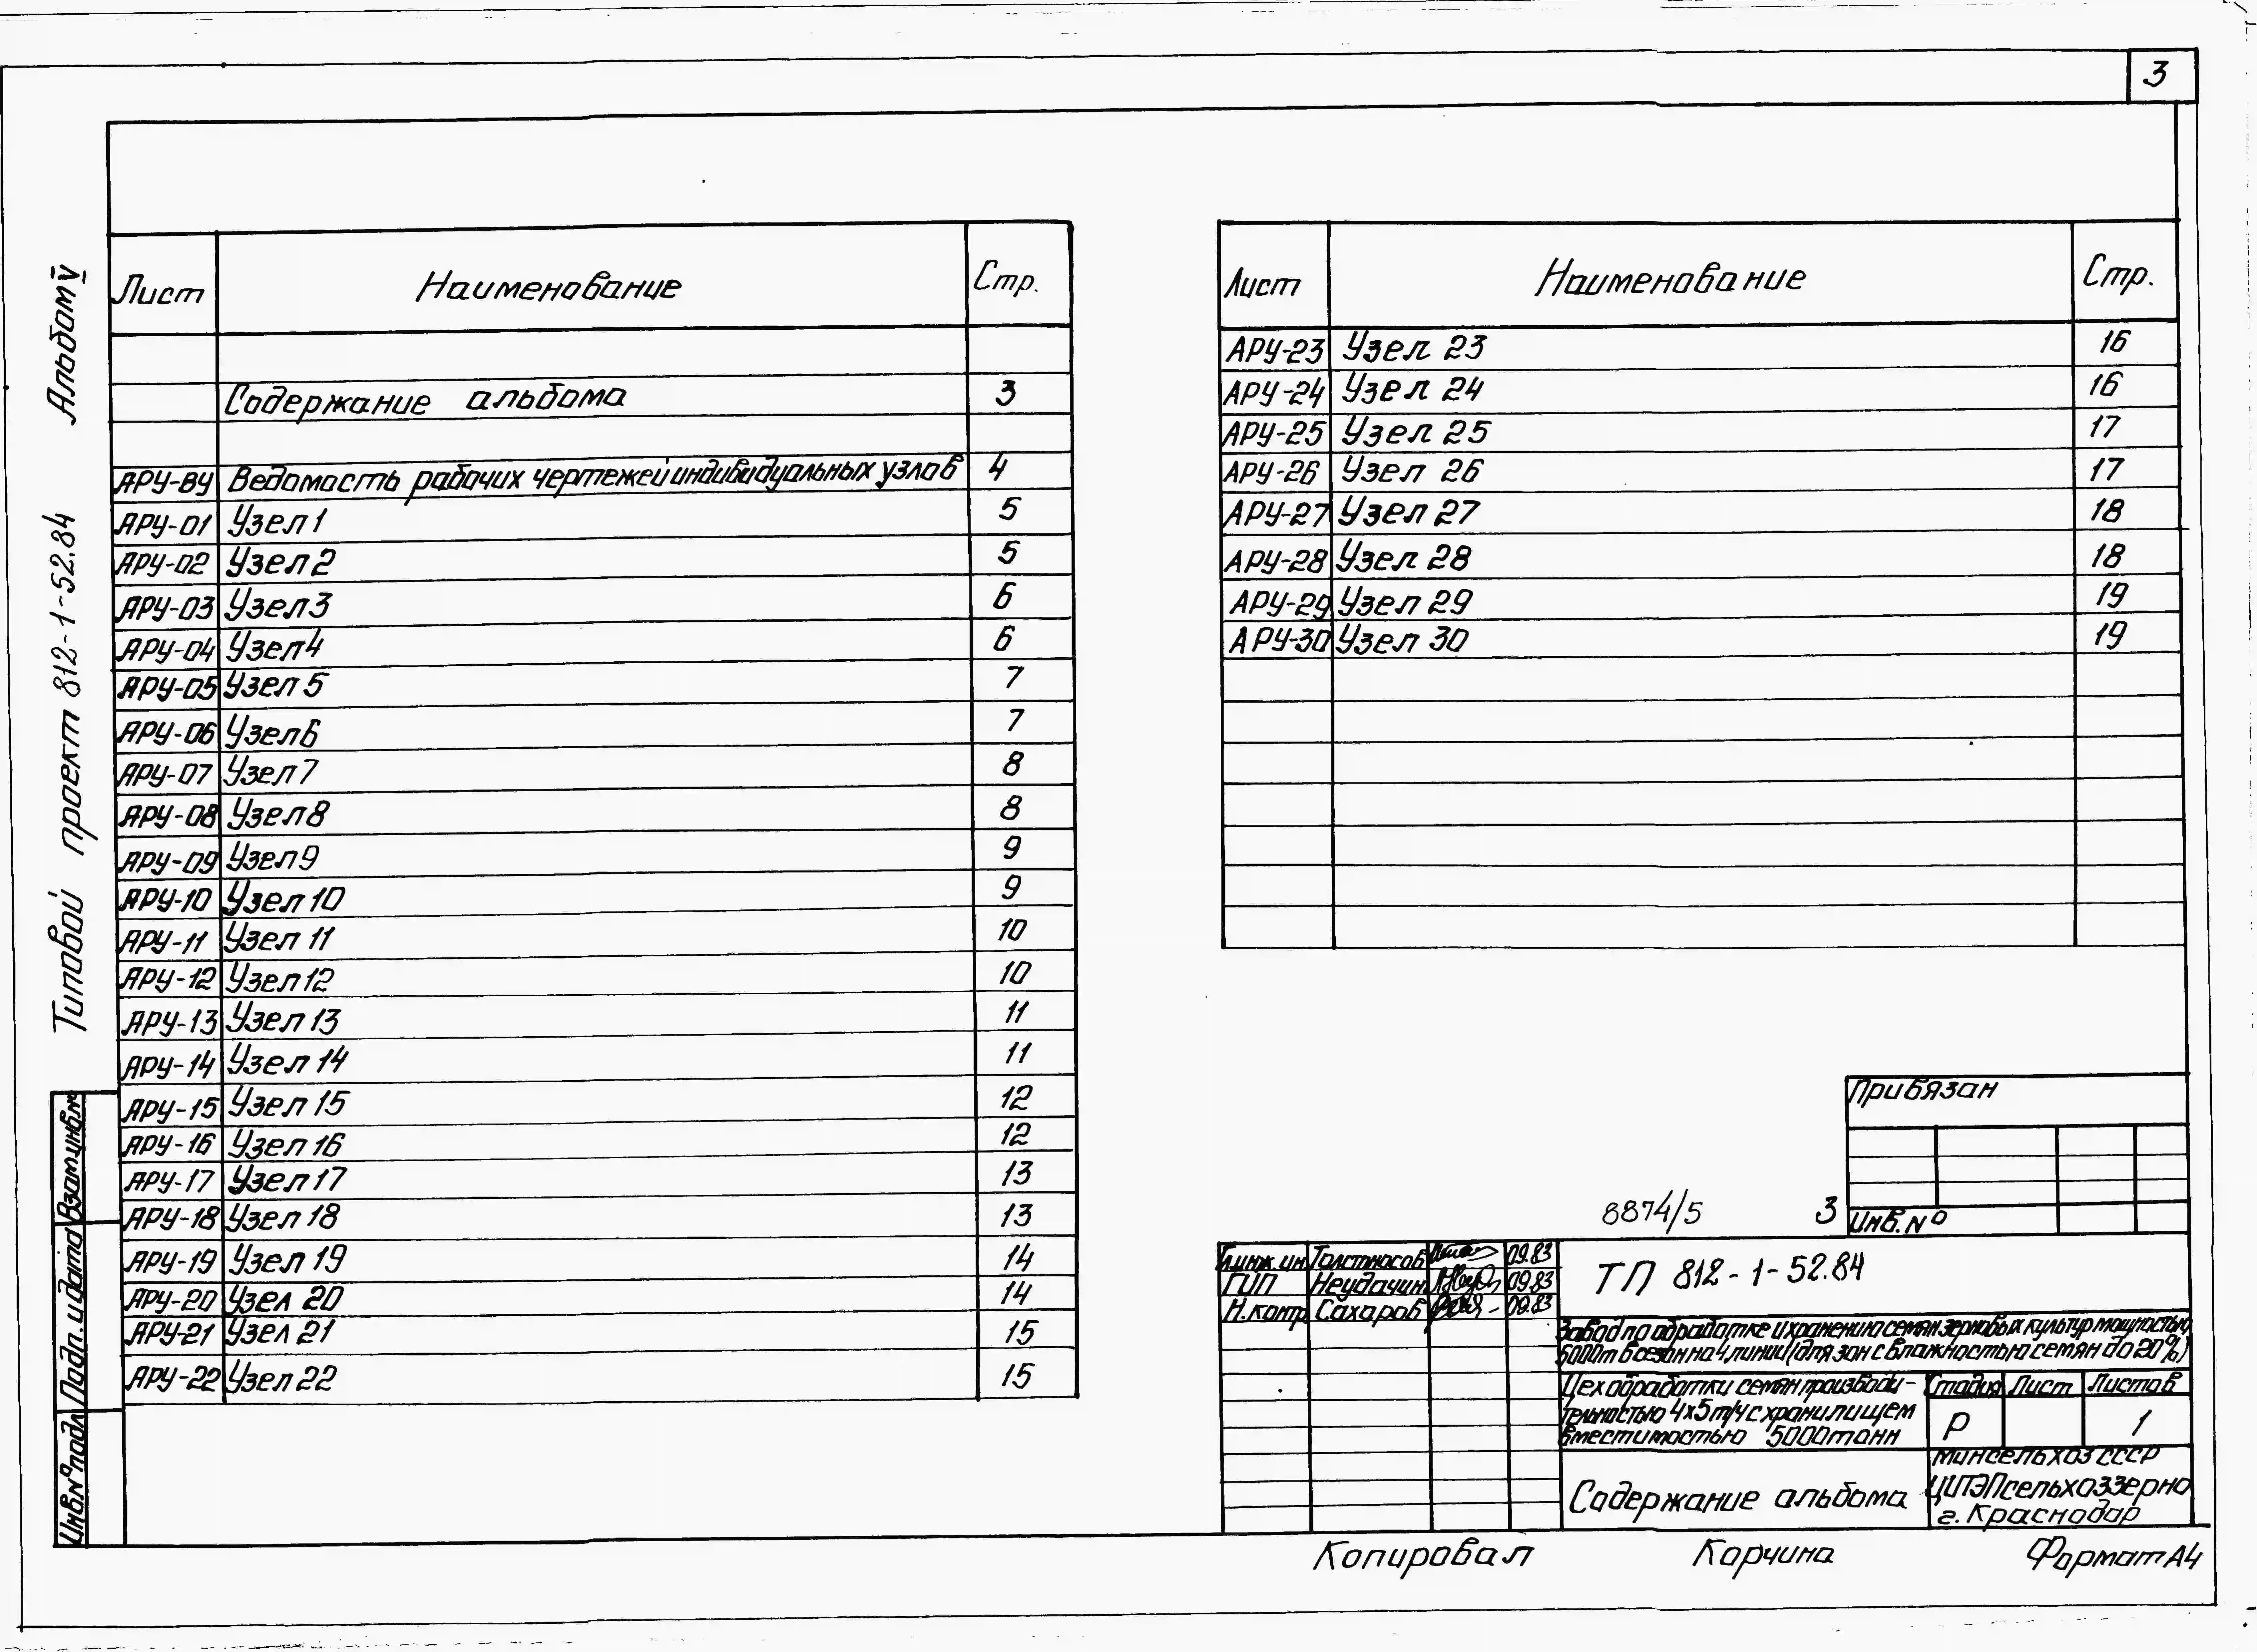 3
Альбом V
Типовой проект 812-1-52.84
Лист Наименование Стр.
Содержание альбома 3
АРУ-ВУ Ведомость рабочих чертежей индивидуальных узлов 4
АРУ-01 Узел 1 5
АРУ-02 Узел 2 5
АРУ-03 Узел 3 6
АРУ-04 Узел 4 6
АРУ-05 Узел 5 7
АРУ-06 Узел 6 7
АРУ-07 Узел 7 8
АРУ-08 Узел 8 8
АРУ-09 Узел 9 9
АРУ-10 Узел 10 9
АРУ-11 Узел 11 10
АРУ-12 Узел 12 10
АРУ-13 Узел 13 11
АРУ-14 Узел 14 11
АРУ-15 Узел 15 12
АРУ-16 Узел 16 12
АРУ-17 Узел 17 13
АРУ-18 Узел 18 13
АРУ-19 Узел 19 14
АРУ-20 Узел 20 14
АРУ-21 Узел 21 15
АРУ-22 Узел 22 15
Лист Наименование Стр.
АРУ-23 Узел 23 16
АРУ-24 Узел 24 16
АРУ-25 Узел 25 17
АРУ-26 Узел 26 17
АРУ-27 Узел 27 18
АРУ-28 Узел 28 18
АРУ-29 Узел 29 19
АРУ-30 Узел 30 19
Взам.инв.№
Подп. и дата
Инв.№ подл
Привязан
Инв. №
8874/5 3
Гл.инж.ин Толстоносов 09.83
ГИП Неудачин 09.83
Н.контр Сахаров 09.83
ТП 812-1-52.84
Завод по обработке и хранению семян зерновых культур мощностью
5000т в сезон на 4 линии (для зон с влажностью семян до 20%)
Цех обработки семян производи-
тельностью 4х5т/ч с хранилищем
вместимостью 5000 тонн
Стадия Лист Листов
Р 1
Содержание альбома
Минсельхоз СССР
ЦИТЭПсельхоззерно
г. Краснодар
Копировал Корчина Формат А4